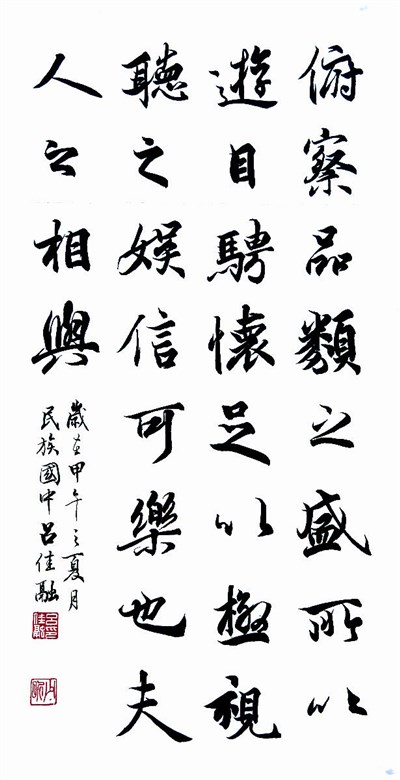 俯察品類之盛所以
遊目騁懷足以極視
聽之娛信可樂也夫
人之相與
歲在甲午之夏月
民族國中呂佳融